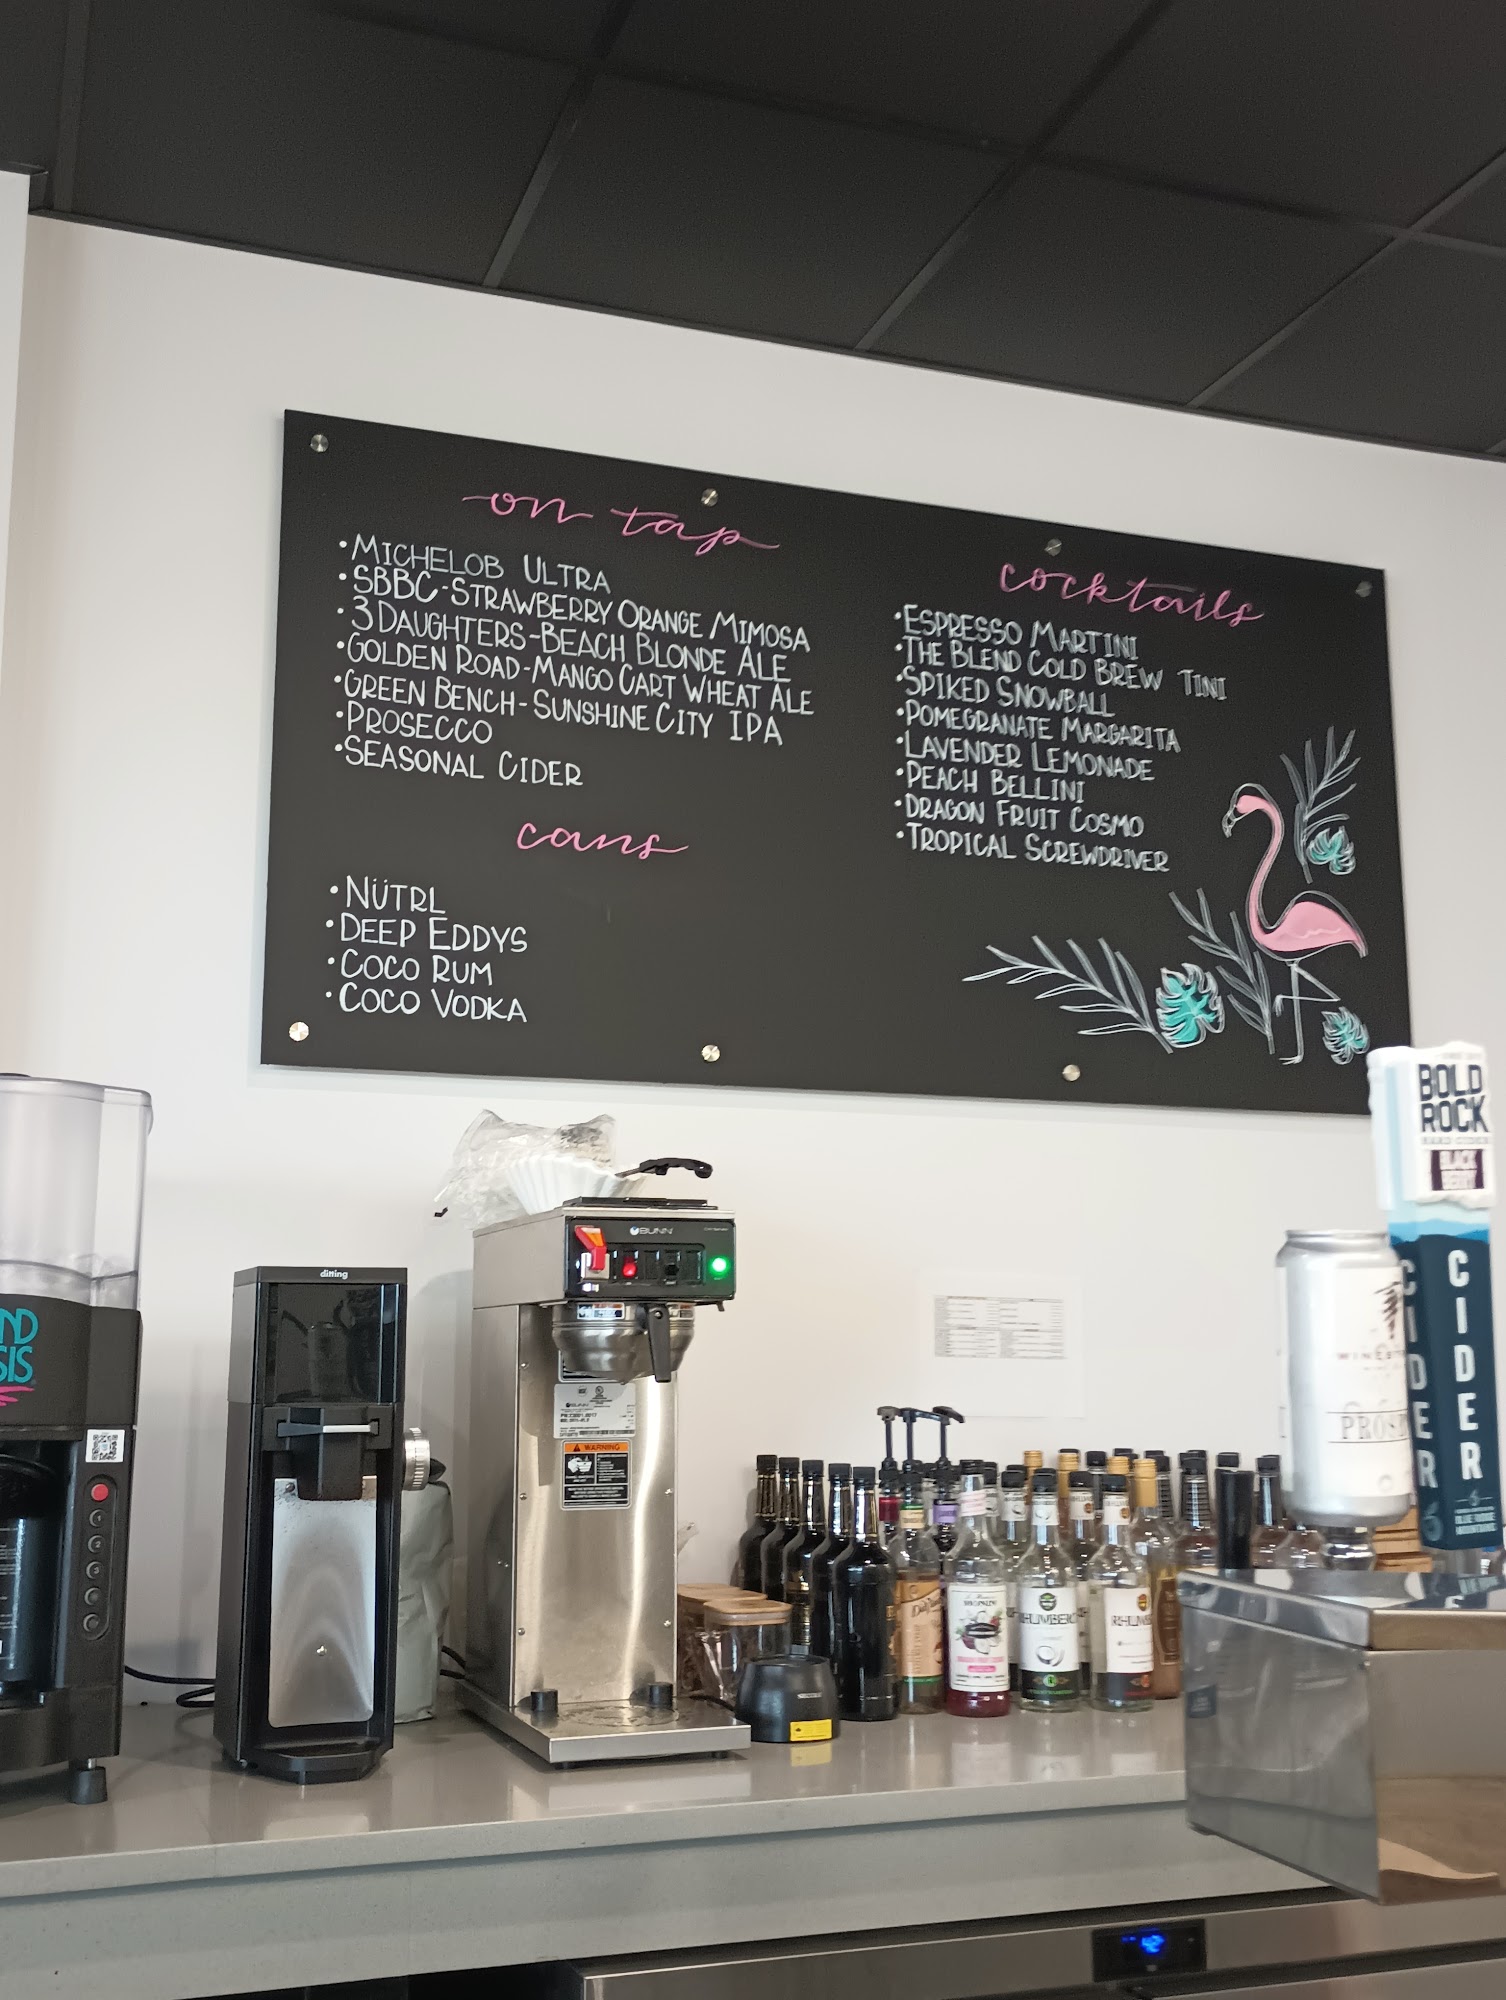 on tap
• MICHELOB ULTRA
• SBBC - STRAWBERRY ORANGE MIMOSA
• 3 DAUGHTERS - BEACH BLONDE ALE
• GOLDEN ROAD - MANGO CART WHEAT ALE
• GREEN BENCH - SUNSHINE CITY IPA
• PROSECCO
• SEASONAL CIDER
cans
• NÜTRL
• DEEP EDDYS
• COCO RUM
• COCO VODKA
cocktails
• ESPRESSO MARTINI
• THE BLEND COLD BREW TINI
• SPIKED SNOWBALL
• POMEGRANATE MARGARITA
• LAVENDER LEMONADE
• PEACH BELLINI
• DRAGON FRUIT COSMO
• TROPICAL SCREWDRIVER
BOLD
ROCK
HARD CIDER
BLACK
BERRY
CIDER
CIDER
ditting
BUNN
WARNING
MONIN